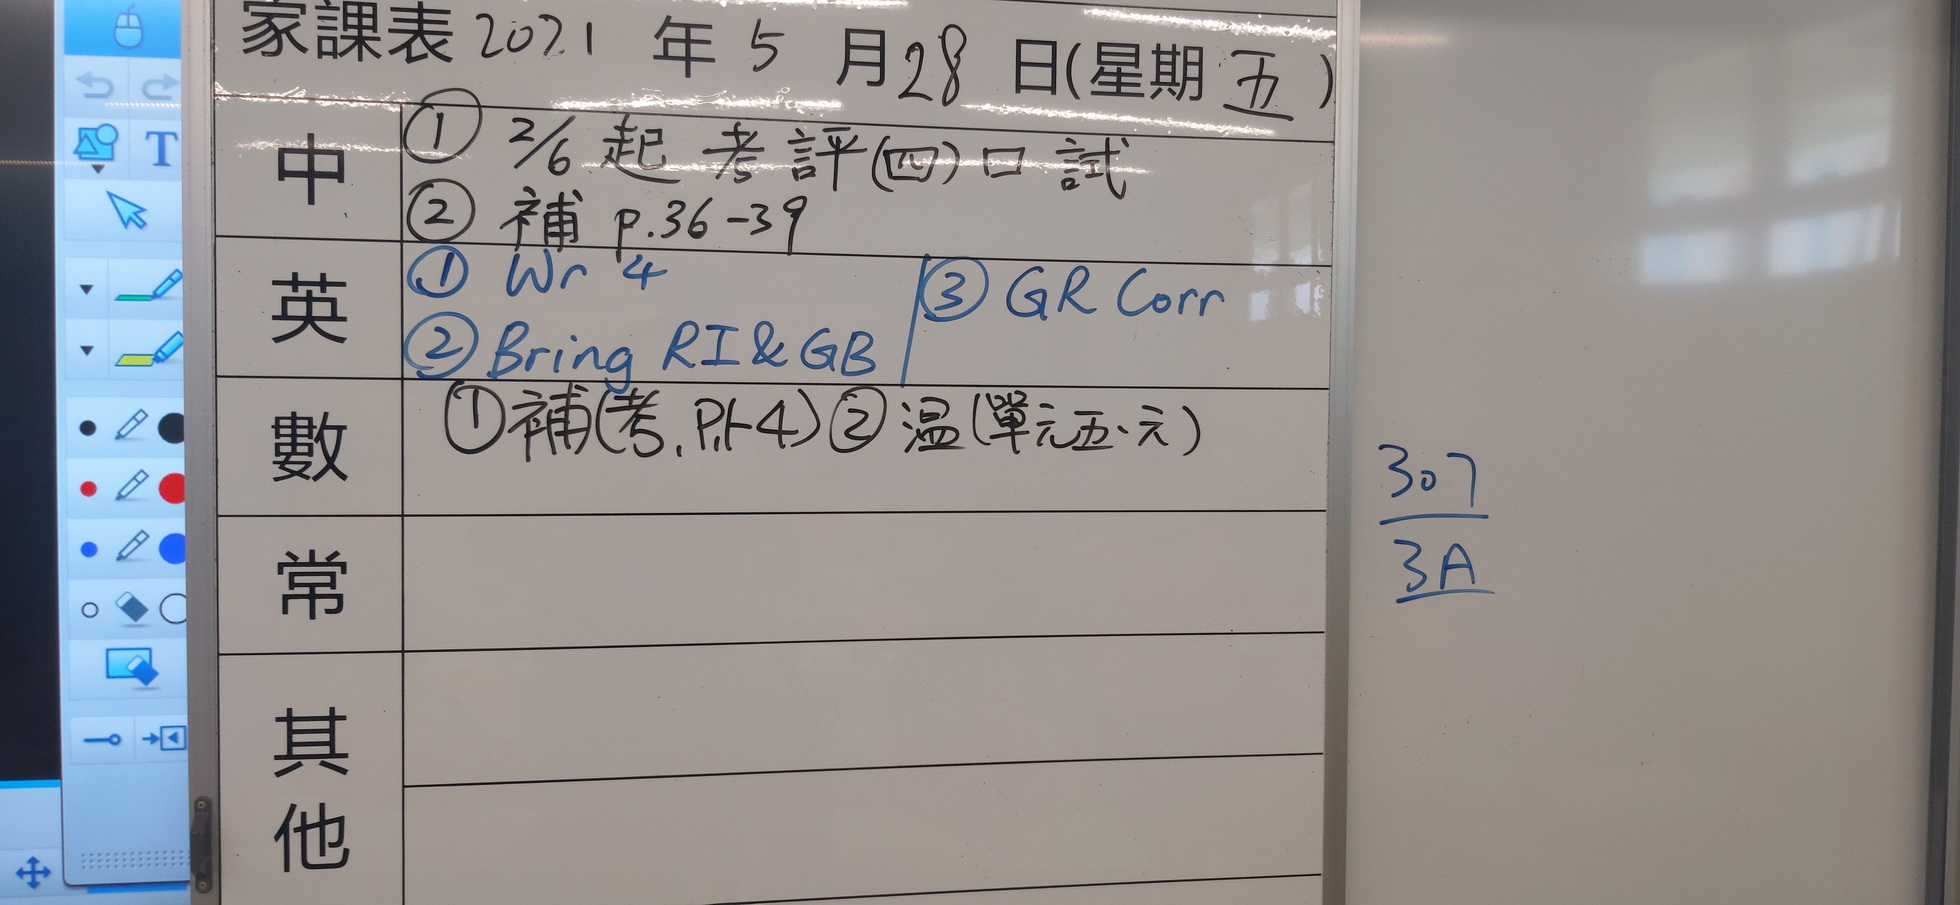 家課表 2021 年 5 月 28 日(星期 五)
中
① 2/6 起 考評(四)口試
② 補 p.36-39
英
① Wr 4
② Bring RI & GB
③ GR Corr
數
①補(考.P.1-4)②温(單元五、六)
常
其他
307
3A
T